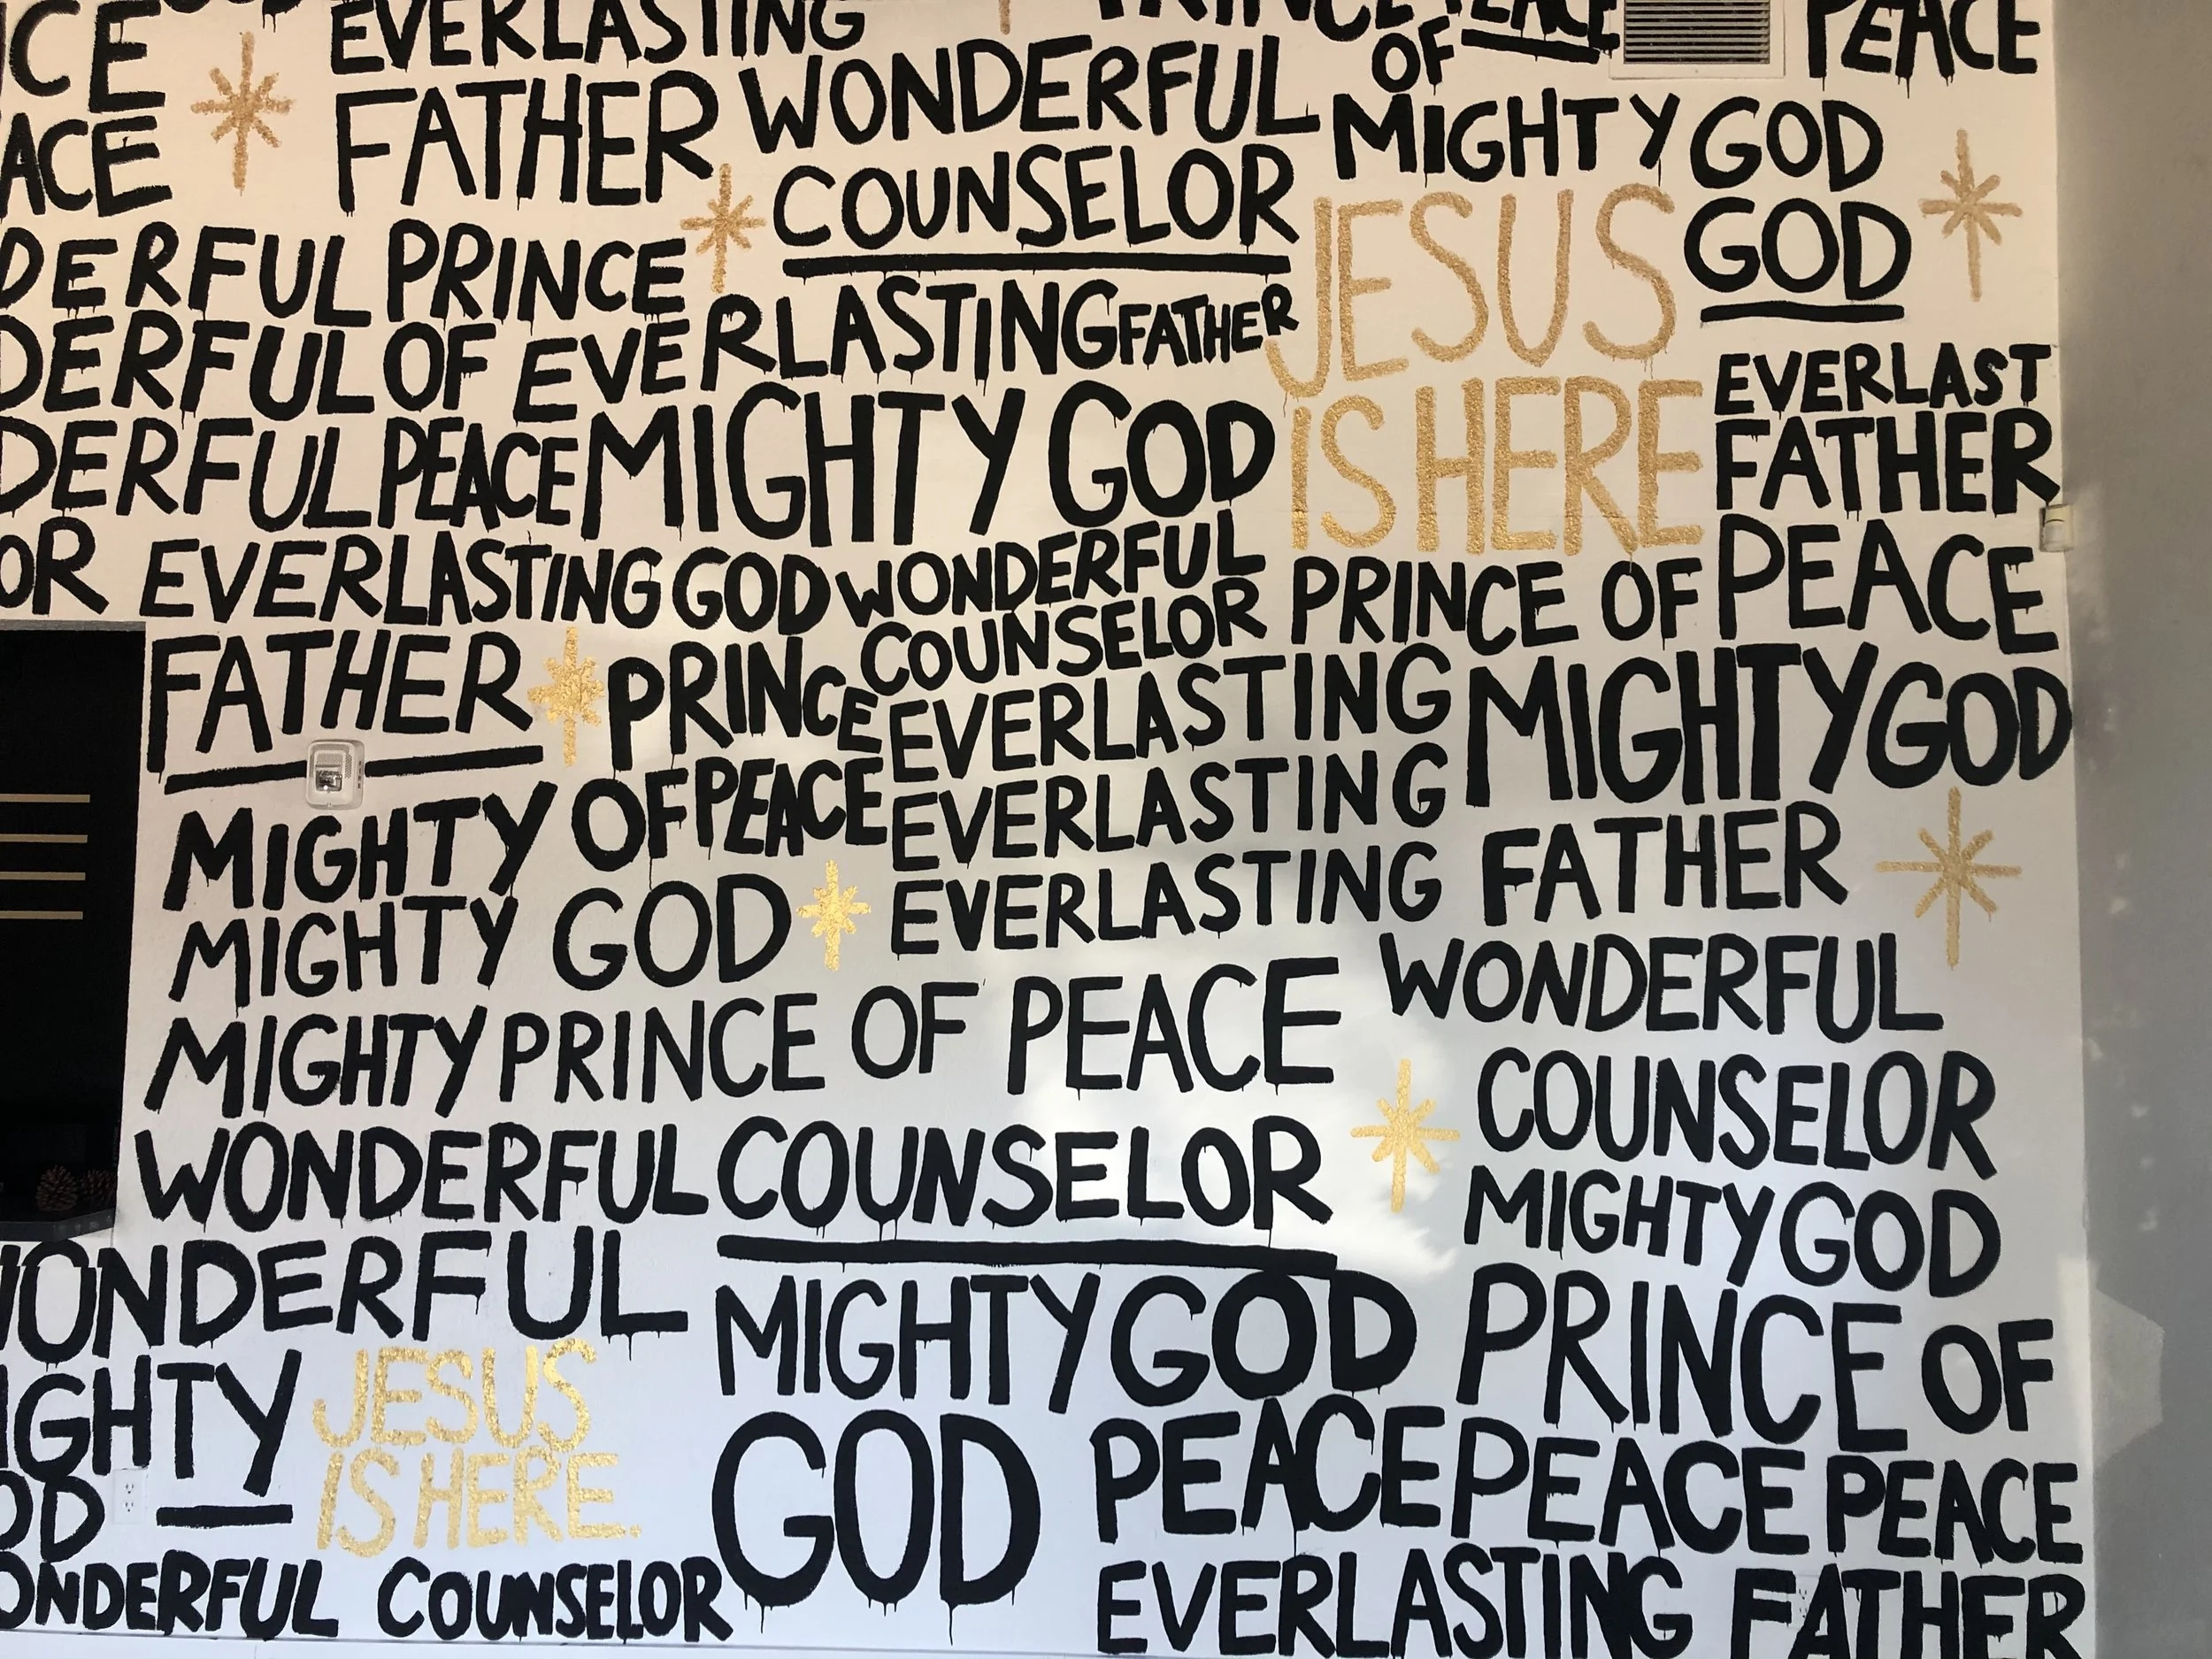 EVERLASTING
FATHER
WONDERFUL
COUNSELOR
PRINCE
OF PEACE
PEACE
MIGHTY GOD
GOD
JESUS
IS HERE
PRINCE
OF
PEACE
EVERLASTING FATHER
MIGHTY GOD
EVERLAST
FATHER
EVERLASTING GOD
FATHER
WONDERFUL
COUNSELOR
PRINCE OF PEACE
PRINCE
OF PEACE
EVERLASTING
EVERLASTING
EVERLASTING
MIGHTY GOD
FATHER
MIGHTY
MIGHTY GOD
MIGHTY PRINCE OF PEACE
WONDERFUL
COUNSELOR
WONDERFUL COUNSELOR
MIGHTY GOD
WONDERFUL
MIGHTY GOD
PRINCE OF
JESUS
IS HERE.
GOD
PEACE PEACE PEACE
WONDERFUL COUNSELOR
EVERLASTING FATHER